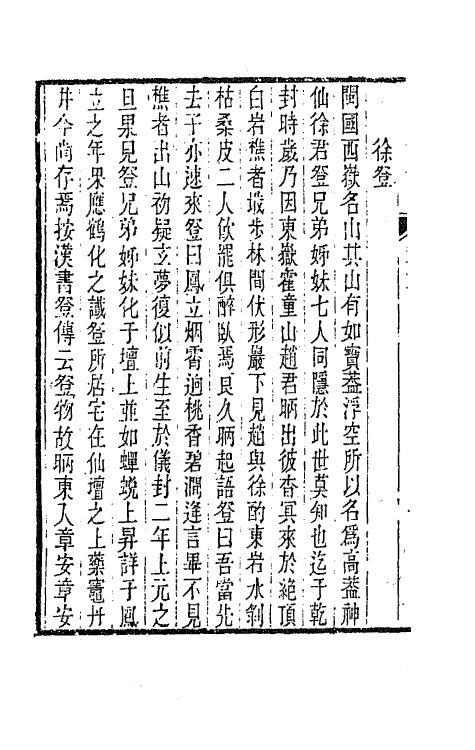 徐登
閩國西嶽名山其山有如寶蓋浮空所以名爲高蓋神
仙徐君登兄弟姊妹七人同隱於此世莫知也迄于乾
封時歲乃因東嶽霍童山趙君昞出彼杳冥來於絶頂
白岩樵者塅步林間伏形巖下見趙與徐酌東岩水剝
枯桑皮二人飲罷俱醉臥焉良久昞起語登曰吾當先
去子亦速來登曰鳳立烟霄逈桃香碧澗逢言畢不見
樵者出山初疑玄夢復似前生至於儀封二年上元之
旦果見登兄弟姊妹化于壇上並如蟬蛻上昇詳于鳳
立之年果應鶴化之讖登所居宅在仙壇之上藥竈丹
井今尚存焉按漢書登傳云登物故昞東入章安章安